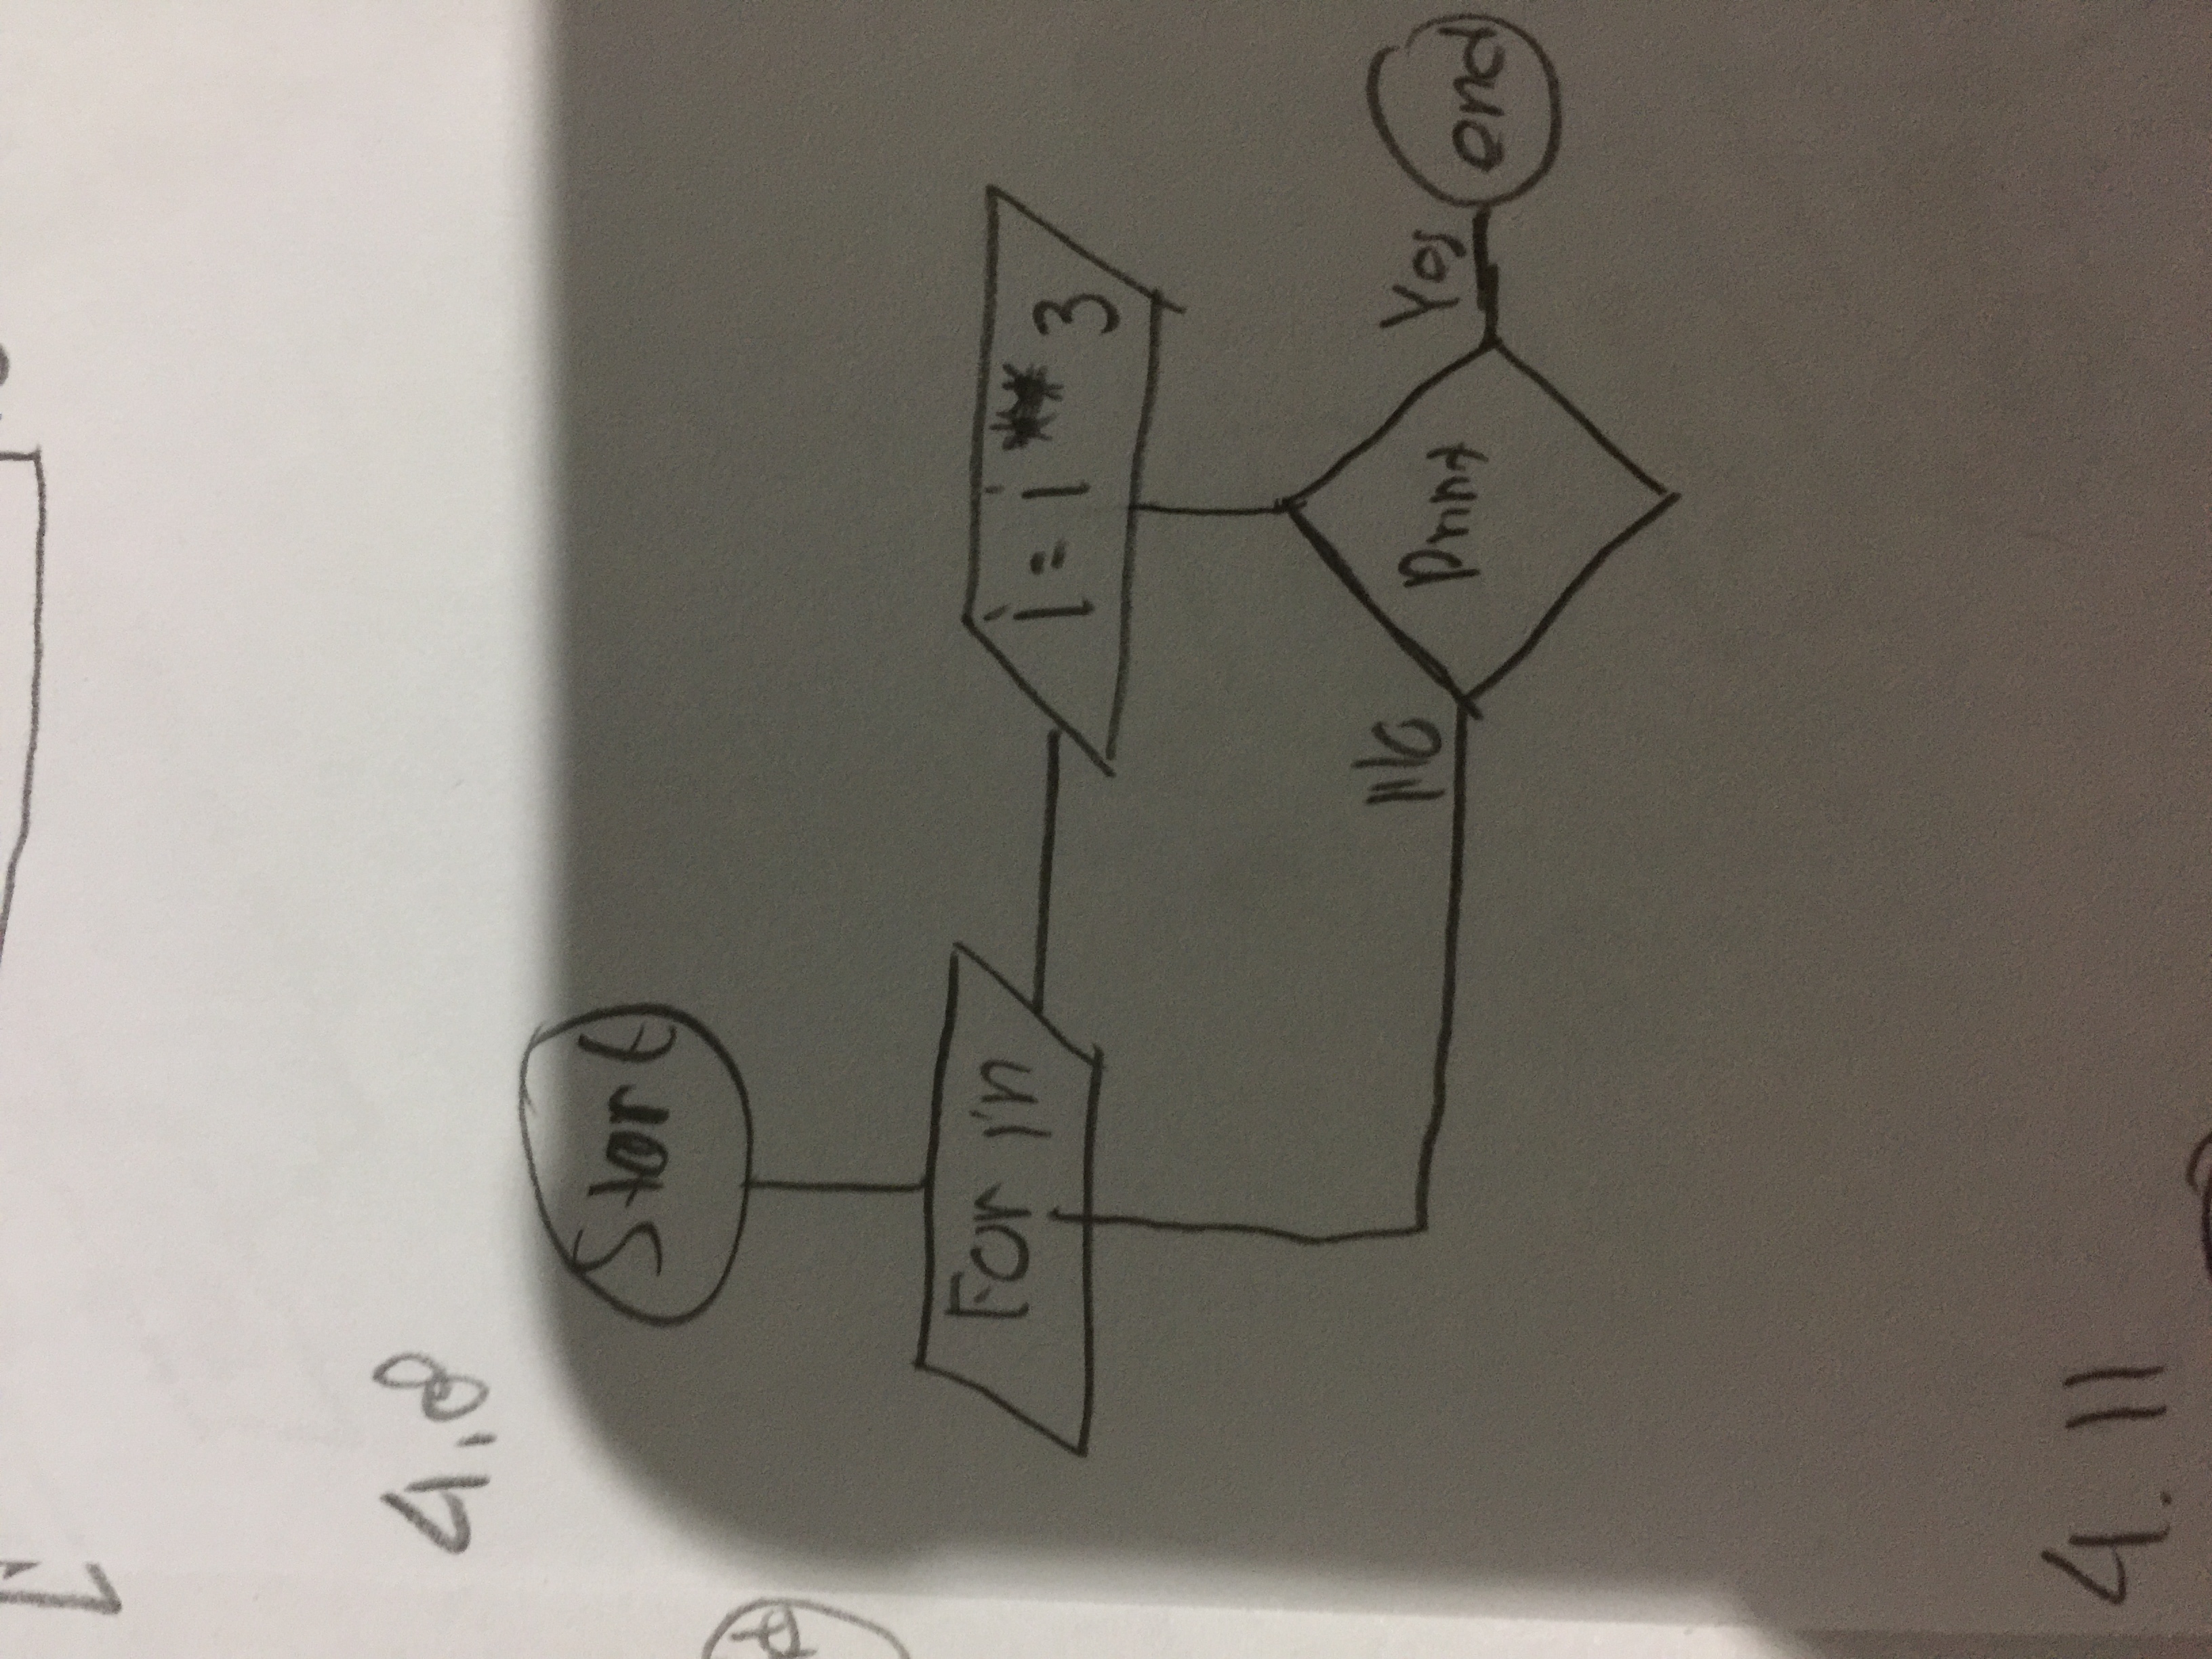 4.8
Start
For in
i = i ** 3
No
Print
Yes
end
4.11